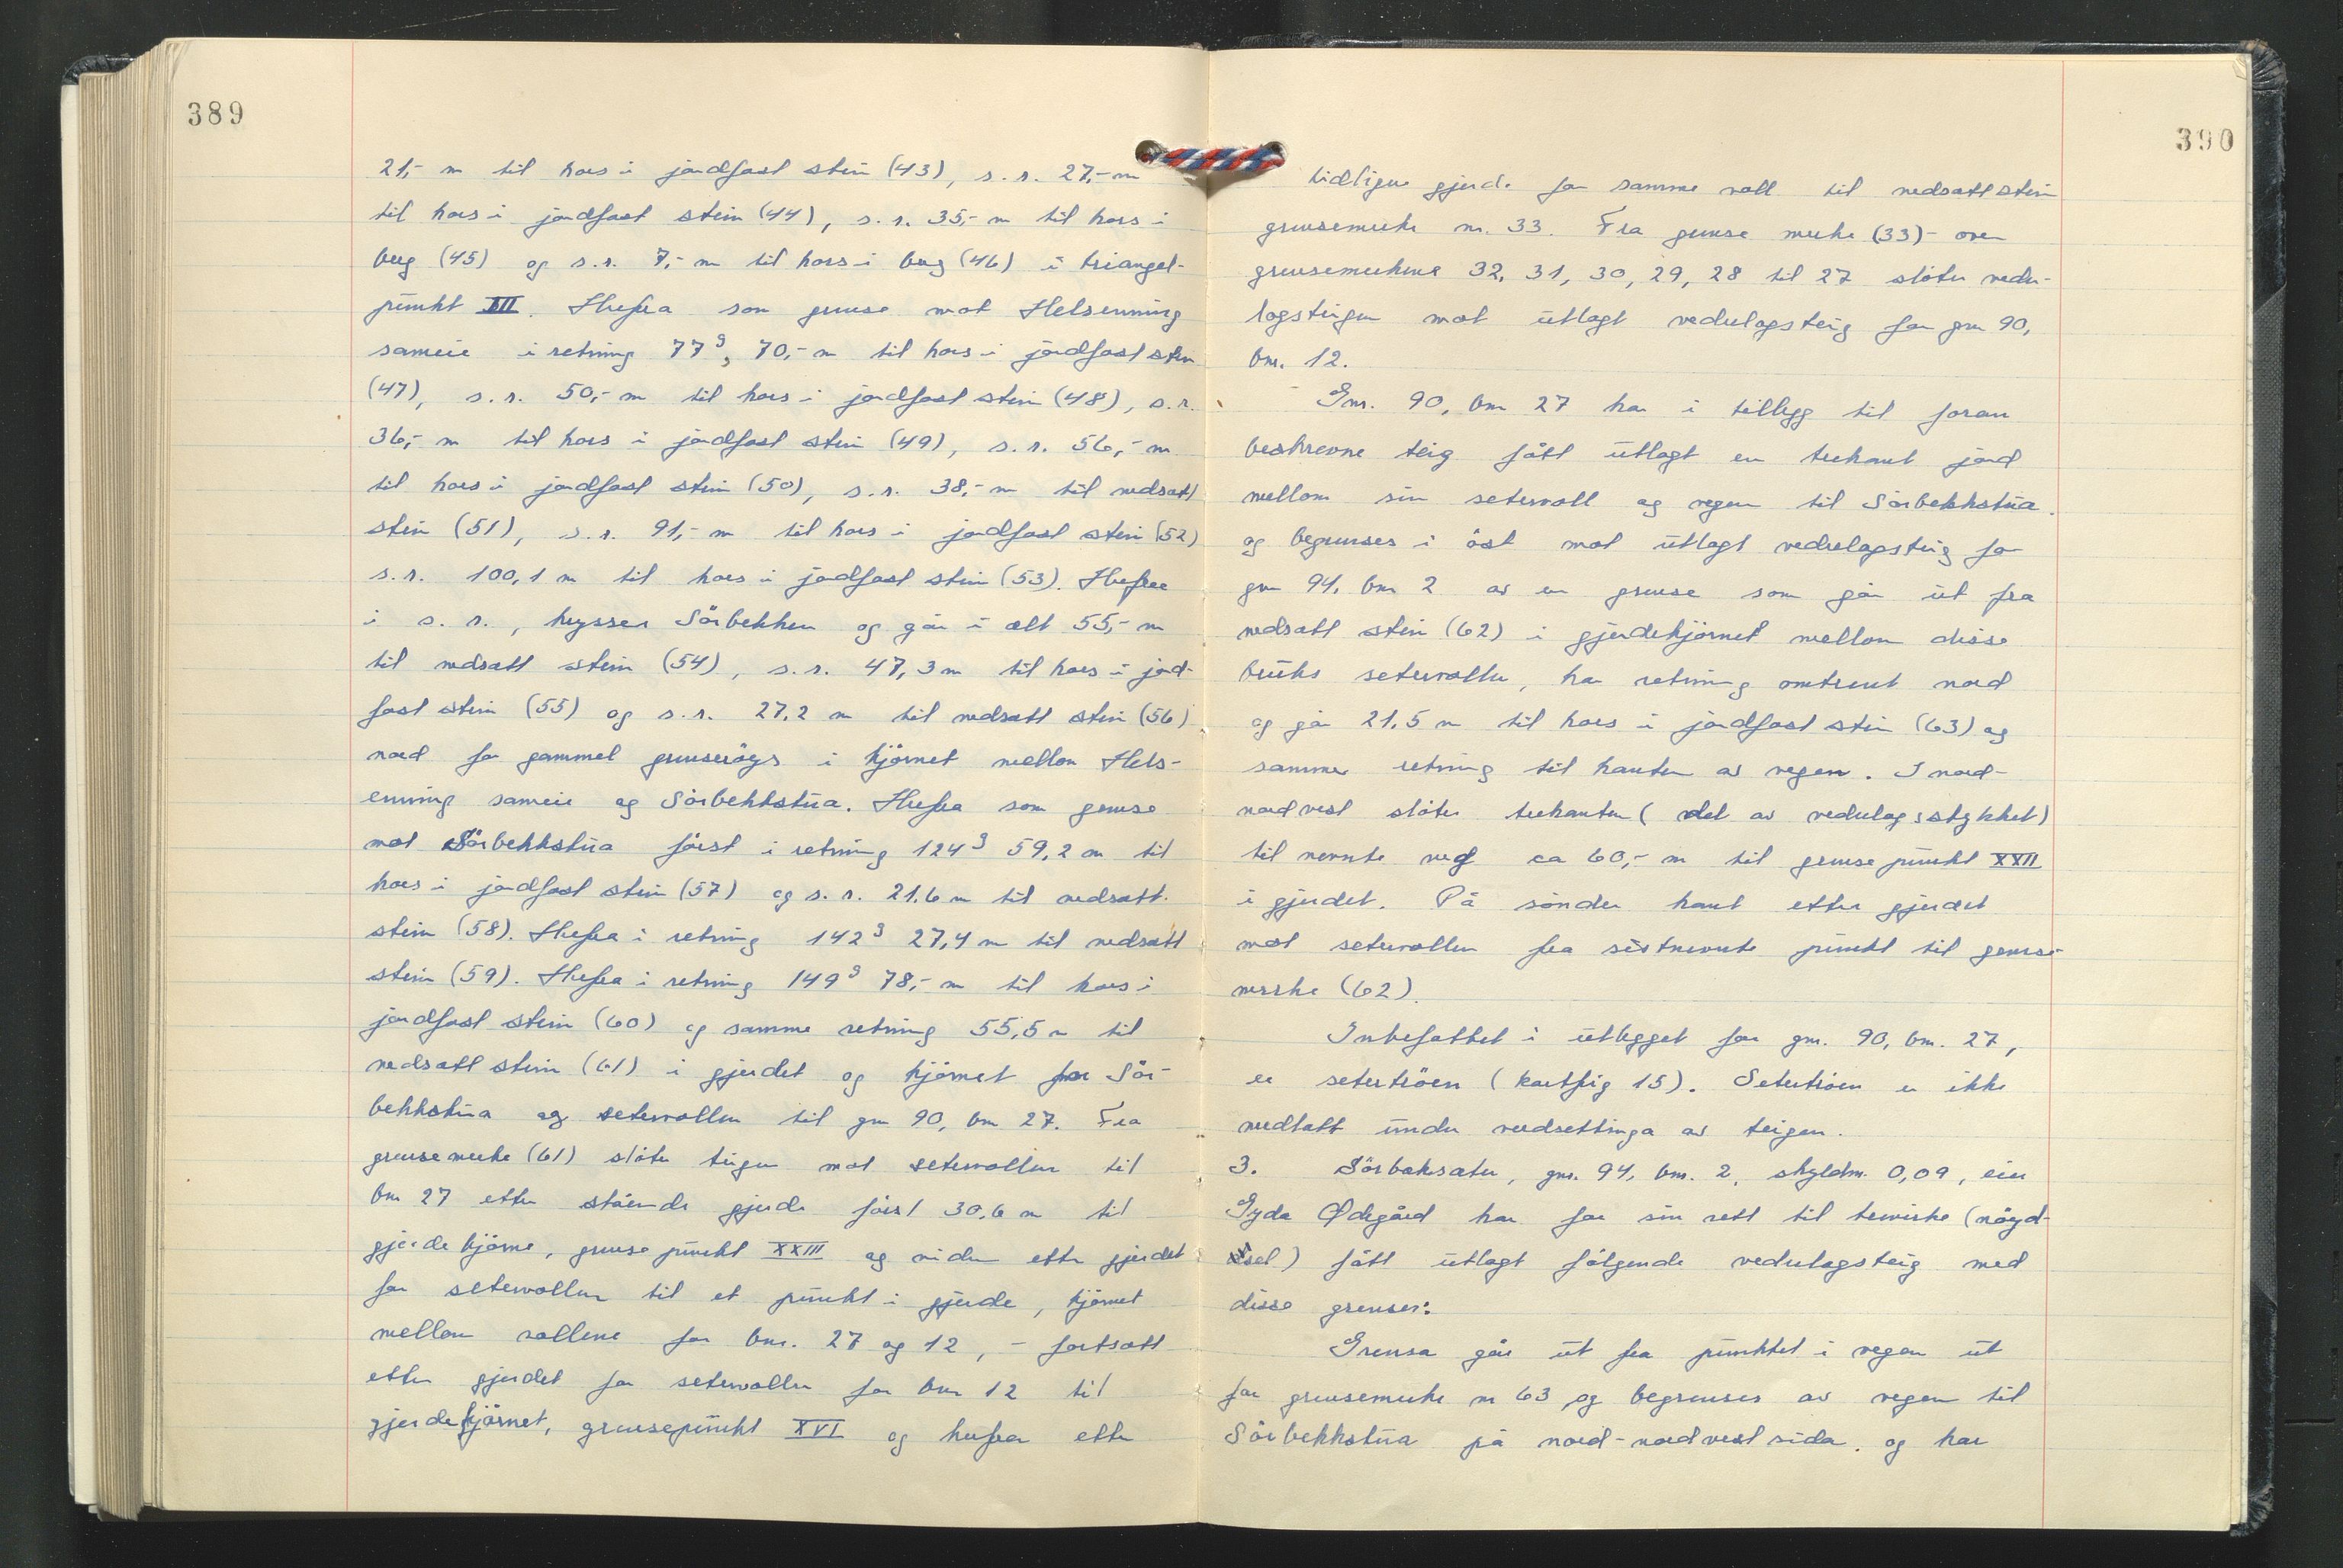 389
21,- m til kors i jordfast stein (43), s.r. 27,- m
til kors i jordfast stein (44), s.r. 35,- m til kors i
berg (45) og s.r. 7,- m til kors i berg (46) i triangel-
punkt XII. Herfra som grense mot Helsenning
sameie i retning 77g, 70,- m til kors i jordfast stein
(47), s.r. 50,- m til kors i jordfast stein (48), s.r.
36,- m til kors i jordfast stein (49), s.r. 56,- m
til kors i jordfast stein (50), s.r. 38,- m til nedsatt
stein (51), s.r. 91,- m til kors i jordfast stein (52)
s.r. 100,1 m til kors i jordfast stein (53). Herfra
i s.r., krysser Sörbekken og går i alt 55,- m
til nedsatt stein (54), s.r. 47,3 m til kors i jord-
fast stein (55) og s.r. 27,2 m til nedsatt stein (56)
nord for gammel grenseröys i hjörnet mellom Hels-
enning sameie og Sörbekkstua. Herfra som grense
mot Sörbekkstua först i retning 124g 59,2 m til
kors i jordfast stein (57) og s.r. 21,6 m til nedsatt
stein (58). Herfra i retning 142g 27,4 m til nedsatt
stein (59). Herfra i retning 149g 78,- m til kors i
jordfast stein (60) og samme retning 55,5 m til
nedsatt stein (61) i gjerdet og hjörnet for Sör-
bekkstua og setervollen til gnr 90, bnr 27. Fra
grensemerke (61) stöter teigen mot setervollen til
bnr 27 etter stående gjerde först 30,6 m til
gjerdehjörne, grensepunkt XXIII og videre etter gjerdet
for setervollen til et punkt i gjerde, hjörnet
mellom vollene for bnr. 27 og 12, - fortsatt
etter gjerdet for setervollen for bnr 12 til
gjerdehjörnet, grensepunkt XVI og herfra etter
390
tidligere gjerde for samme voll til nedsatt stein
grensemerke nr. 33. Fra grense merke (33)- over
grensemerkene 32, 31, 30, 29, 28 til 27 stöter veder-
lagsteigen mot utlagt vederlagsteig for gnr 90,
bnr. 12.
Gnr. 90, bnr 27 har i tillegg til foran
beskrevne teig fått utlagt en trekant jord
mellom sin setervoll og vegen til Sörbekkstua.
og begrenses i öst mot utlagt vederlagsteig for
gnr 94, bnr 2 av en grense som går ut fra
nedsatt stein (62) i gjerdehjörnet mellom disse
bruks setervoller, har retning omtrent nord
og går 21,5 m til kors i jordfast stein (63) og
samme retning til kanten av vegen. I nord-
nordvest stöter trekanten (det av vederlagsstykket)
til nevnte veg ca 60,- m til grensepunkt XXII
i gjerdet. På söndre kant etter gjerdet
mot setervollen fra sistnevnte punkt til grense
merke (62).
Innbefattet i utlegget for gnr. 90, bnr. 27,
er setertröen (kartfig 15). Setertröen er ikke
medtatt under verdsettinga av teigen.
3. Sörbaksæter, gnr. 94, bnr. 2, skyldm. 0,09, eier
Gyda Ødegård har for sin rett til temirke (nöyd-
sel) fått utlagt fölgende vederlagsteig med
disse grenser:
Grensa går ut fra punktet i vegen ut
for grensemerke nr 63 og begrenses av vegen til
Sörbekkstua på nord-nordvest sida. og har